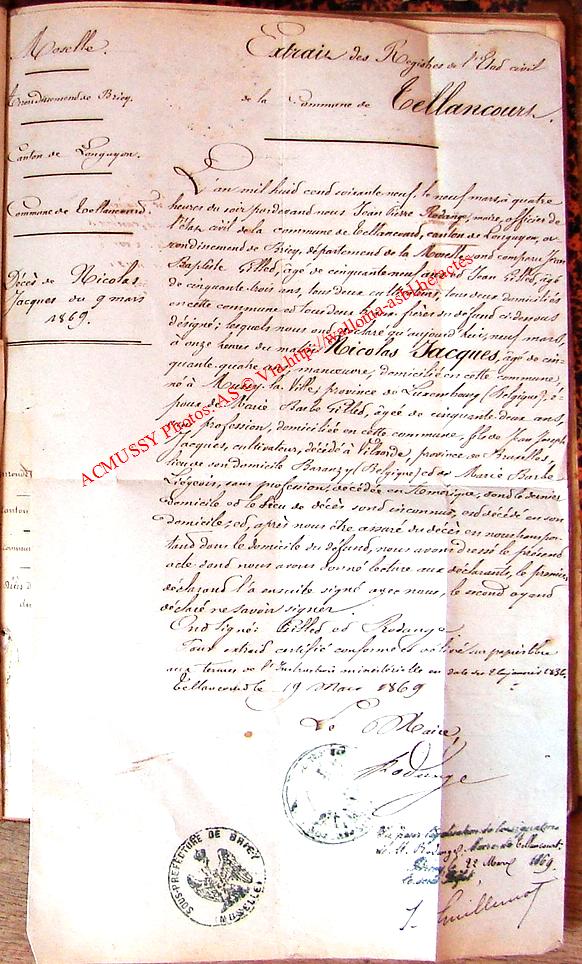 Moselle.
Arrondissement de Briey.
Canton de Longuyon.
Commune de Tellancourt.
Décès de Nicolas
Jacques du 9 mars
1869.
Extrait des Registres de l'Etat civil
de la Commune de Tellancourt.
L'an mil huit cent soixante neuf, le neuf mars, à quatre
heures du soir pardevant nous Jean Pierre Rodange, maire, officier de
l'état civil de la commune de Tellancourt, canton de Longuyon, ar
rondissement de Briey, département de la Moselle, ont comparu Jean
Baptiste Gillet, âgé de cinquante neuf ans, et Jean Gillet, âgé
de cinquante trois ans, tous deux cultivateurs, tous deux domiciliés
en cette commune et tous deux beaux frères du défunt ci-dessous
désigné; lesquels nous ont déclaré qu'aujourd'hui, neuf mars,
à onze heures du matin, Nicolas Jacques, âgé de cin
quante quatre ans, manoeuvre, domicilié en cette commune,
né à Mussy-la-Ville, province de Luxembourg (Belgique), é-
poux de Marie Barbe Gillet, âgée de cinquante deux ans,
sans profession, domiciliée en cette commune, fils de Jean Joseph
Jacques, cultivateur, décédé à Vilvorde, province de Bruxelles,
son domicile Baranzy (Belgique) et de Marie Barbe
Liégeois, sans profession, décédée en Amérique, dont le dernier
domicile et le lieu de décès sont inconnus, est décédé en son
domicile; et, après nous être assuré du décès en nous transpor-
tant dans le domicile du défunt, nous avons dressé le présent
acte dont nous avons donné lecture aux déclarants, le premier
déclarant l'a ensuite signé avec nous, le second ayant
déclaré ne savoir signer.
Ont signé: Gillet et Rodange.
Pour extrait certifié conforme et délivré sur papier libre
aux termes de l'Instruction ministérielle en date du janvier 1836.
Tellancourt le 19 Mars 1869
Le Maire,
Rodange
SOUS-PREFECTURE DE BRIEY
(MOSELLE)
Vu pour légalisation de la signature
de M. Rodange, Maire de Tellancourt
Briey 22 Mars 1869.
Le Sous Préfet
ACMUSSY Photos: AS © Via http://wallonia-asbl.be/actes